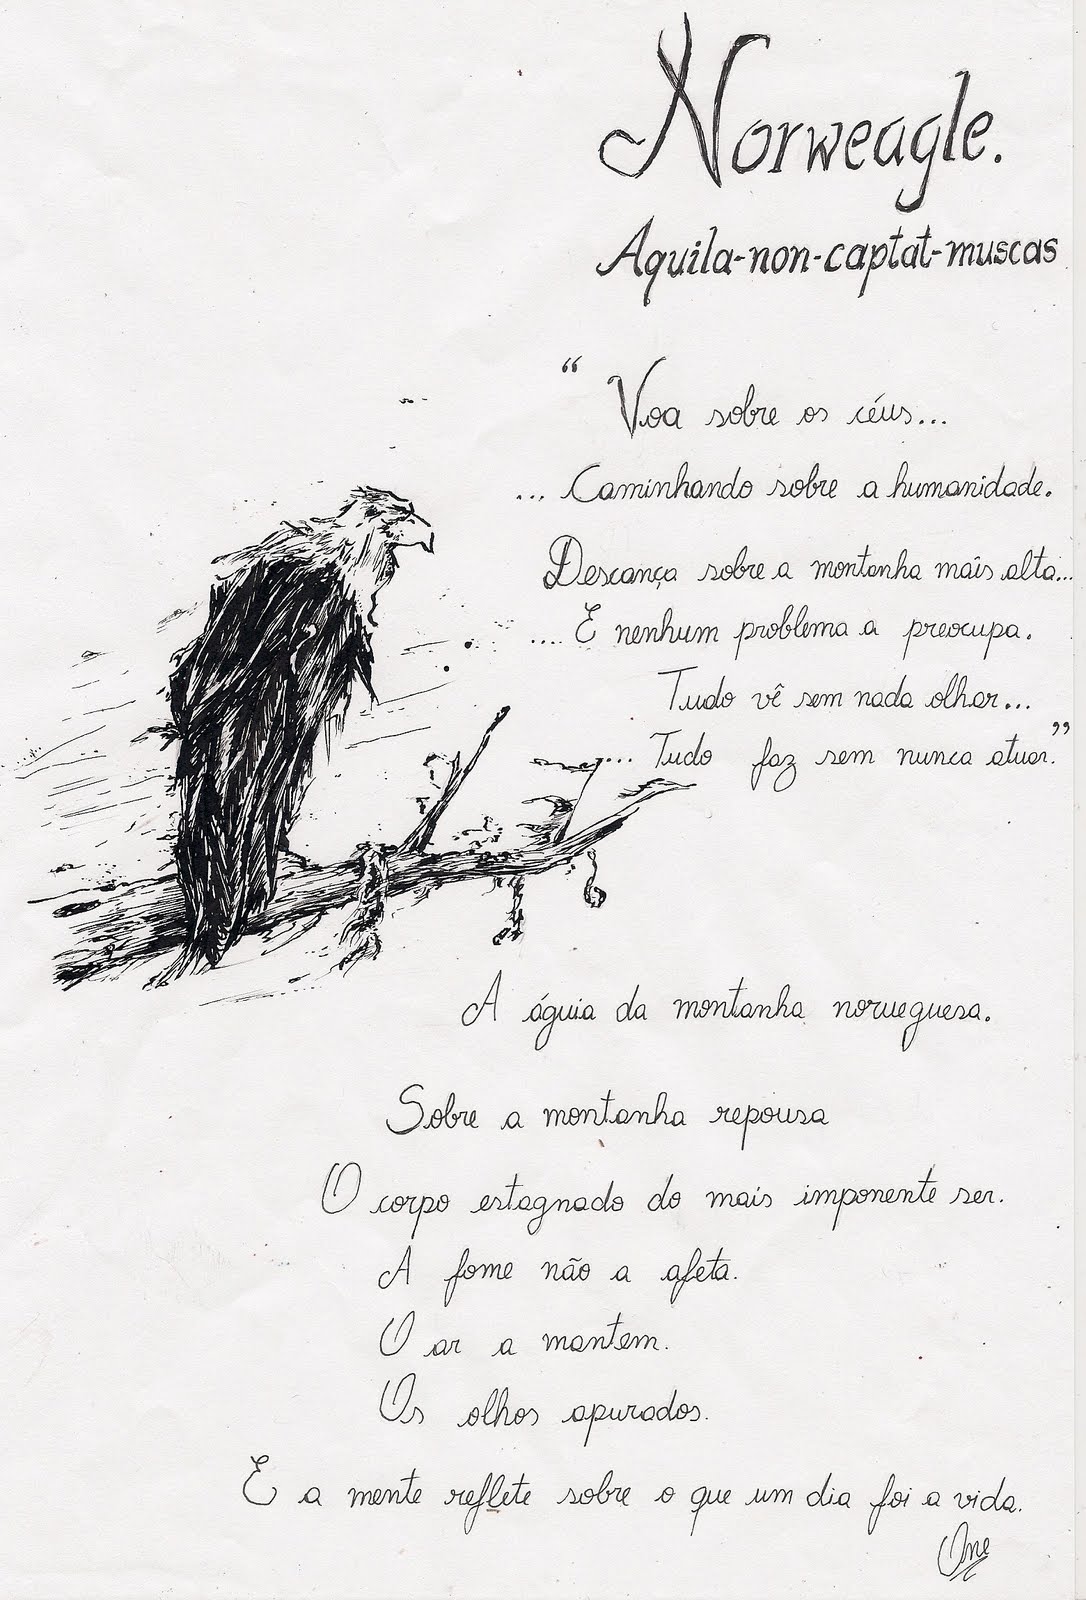 Norweagle.
Aquila-non-captat-muscas
“ Voa sobre os céus...
... Caminhando sobre a humanidade.
Descança sobre a montanha mais alta...
.... E nenhum problema a preocupa.
Tudo vê sem nada olhar...
... Tudo faz sem nunca atuar.”
A águia da montanha norueguesa.
Sobre a montanha repousa
O corpo estagnado do mais imponente ser.
A fome não a afeta.
O ar a mantem.
Os olhos apurados.
E a mente reflete sobre o que um dia foi a vida.
One